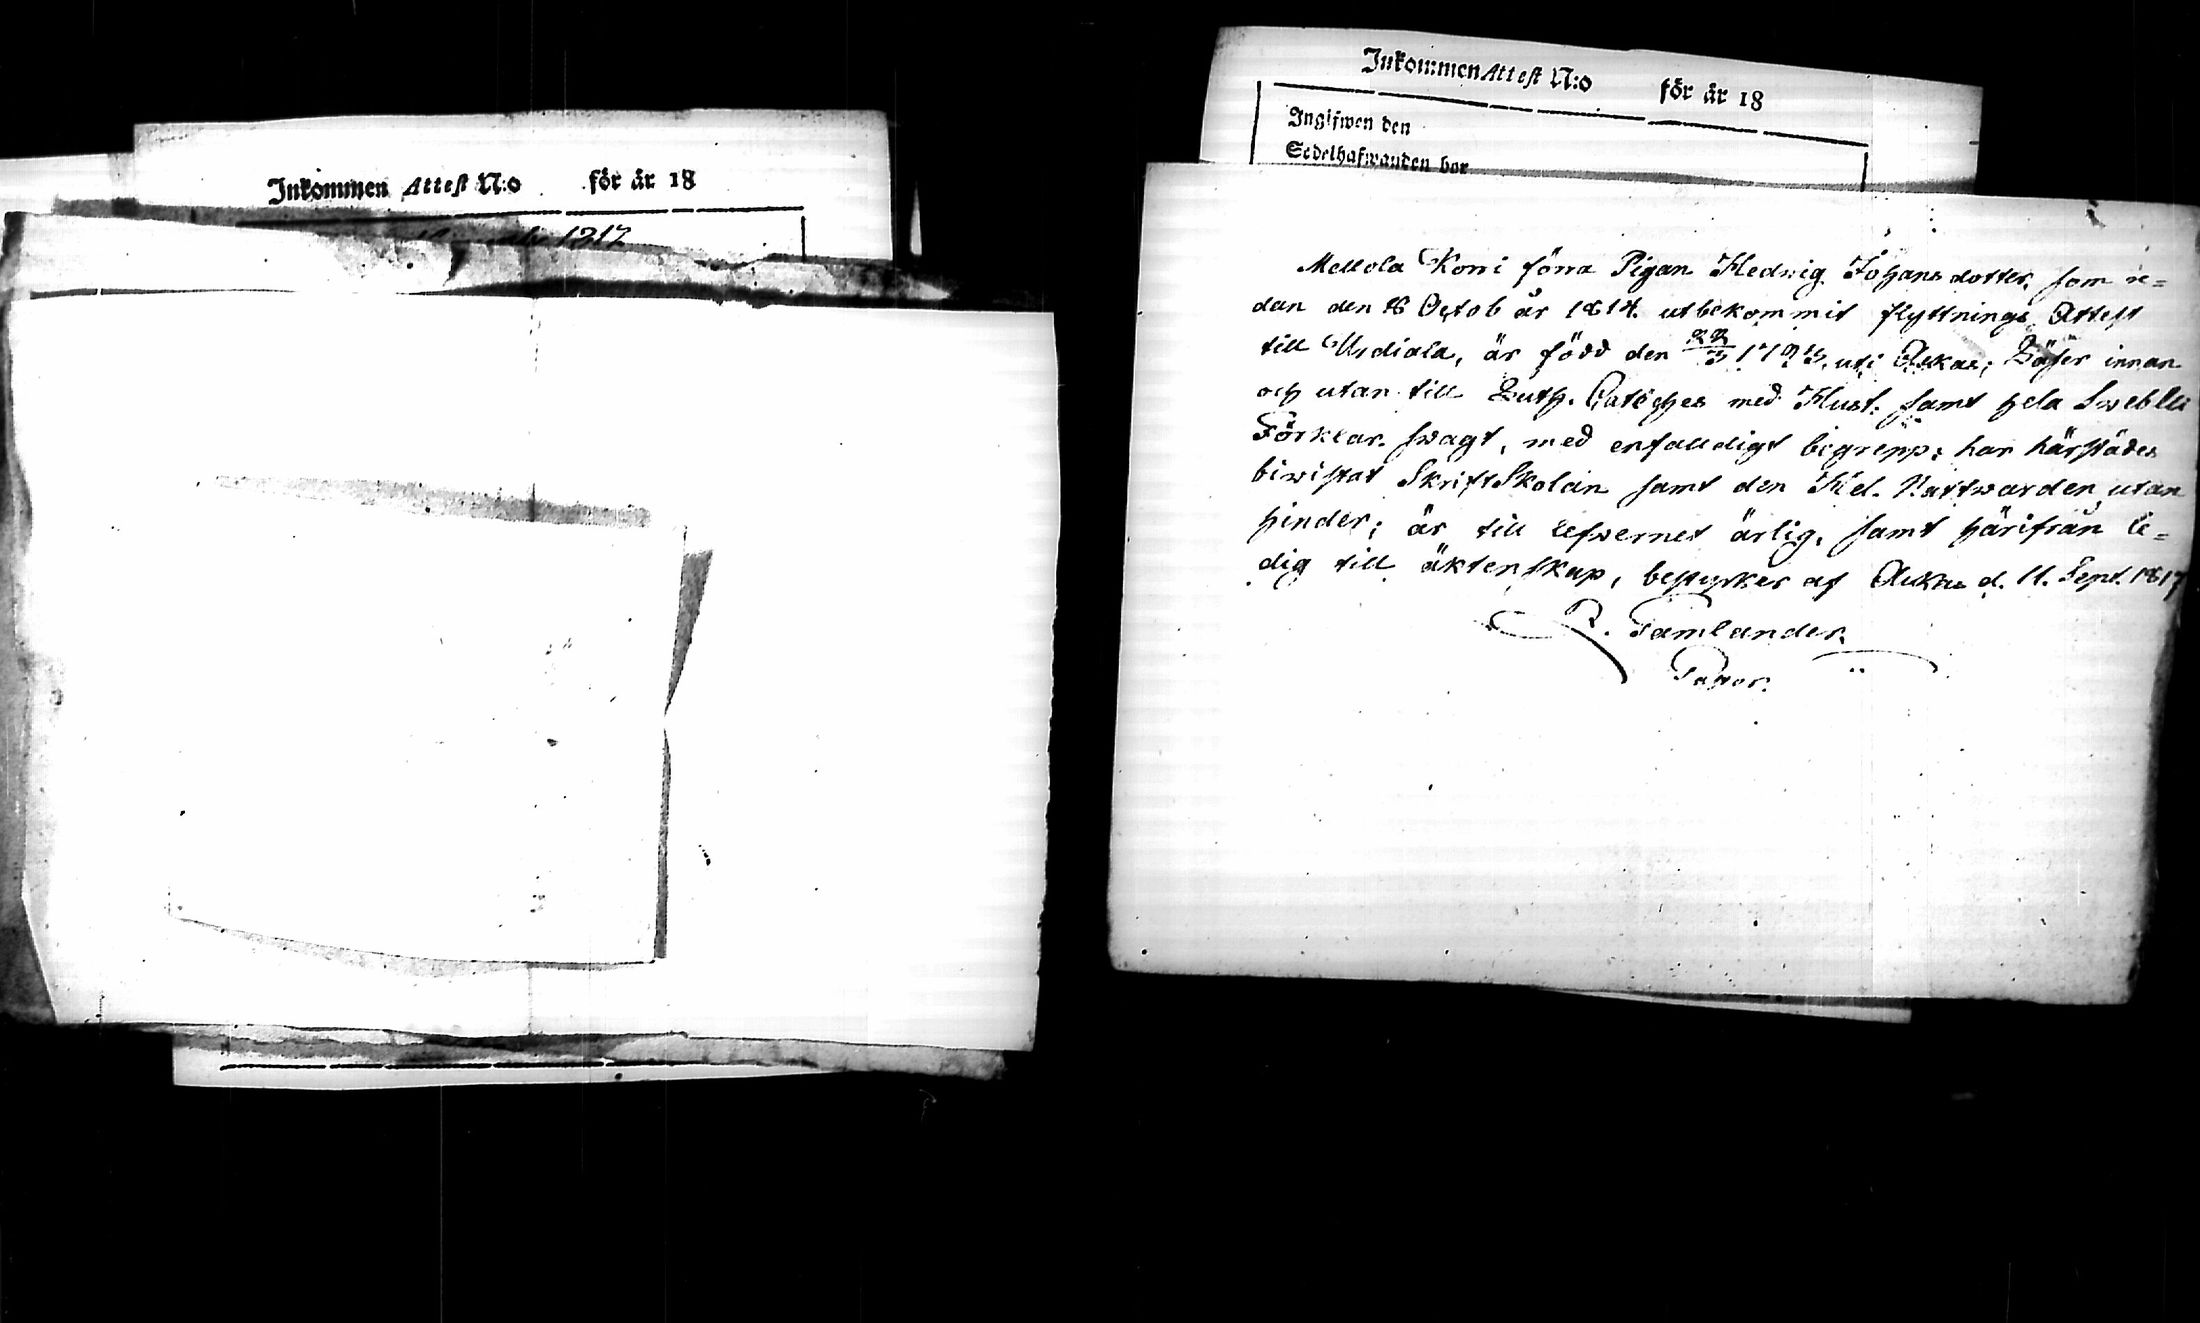 Inkommen Attest N:o för år 18
1817
Inkommen Attest N:o för år 18
Ingifwen den
Sedelhafwanden bor
Mellola Korri förra Pigan Hedwig Johansdotter, som re=
dan den 8 Octob år 1814. utbekommit flyttnings Attest
till Urdiala, är född den 22/3 1793, uti Akkas; Läser innan
och utan till Luth. Cateches med Hust. samt hela Swebilii
Förklar. swagt, med enfalldigt begrepp; har härstädes
biwistat SkriftSkolan samt den H. Nattwarden utan
hinder; är till lefwernet ärlig, samt härifrån le=
dig till äktenskap, bestyrker af Akkas d. 11. Sept. 1817
Tamlander.
Pastor.